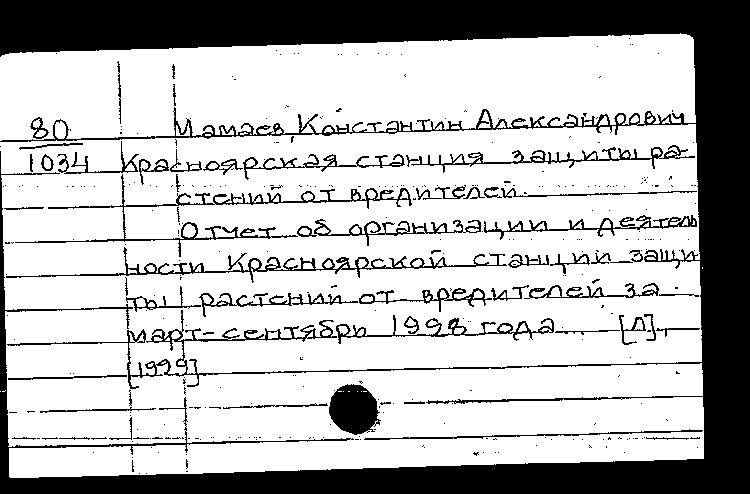 80 Мамаев, Константин Александрович
1034 Красноярская станция защиты ра-
стений от вредителей.
Отчет об организации и деятель
ности Красноярской станции защи
ты растений от вредителей за
март-сентябрь 1928 года... [Л].,
[1929]